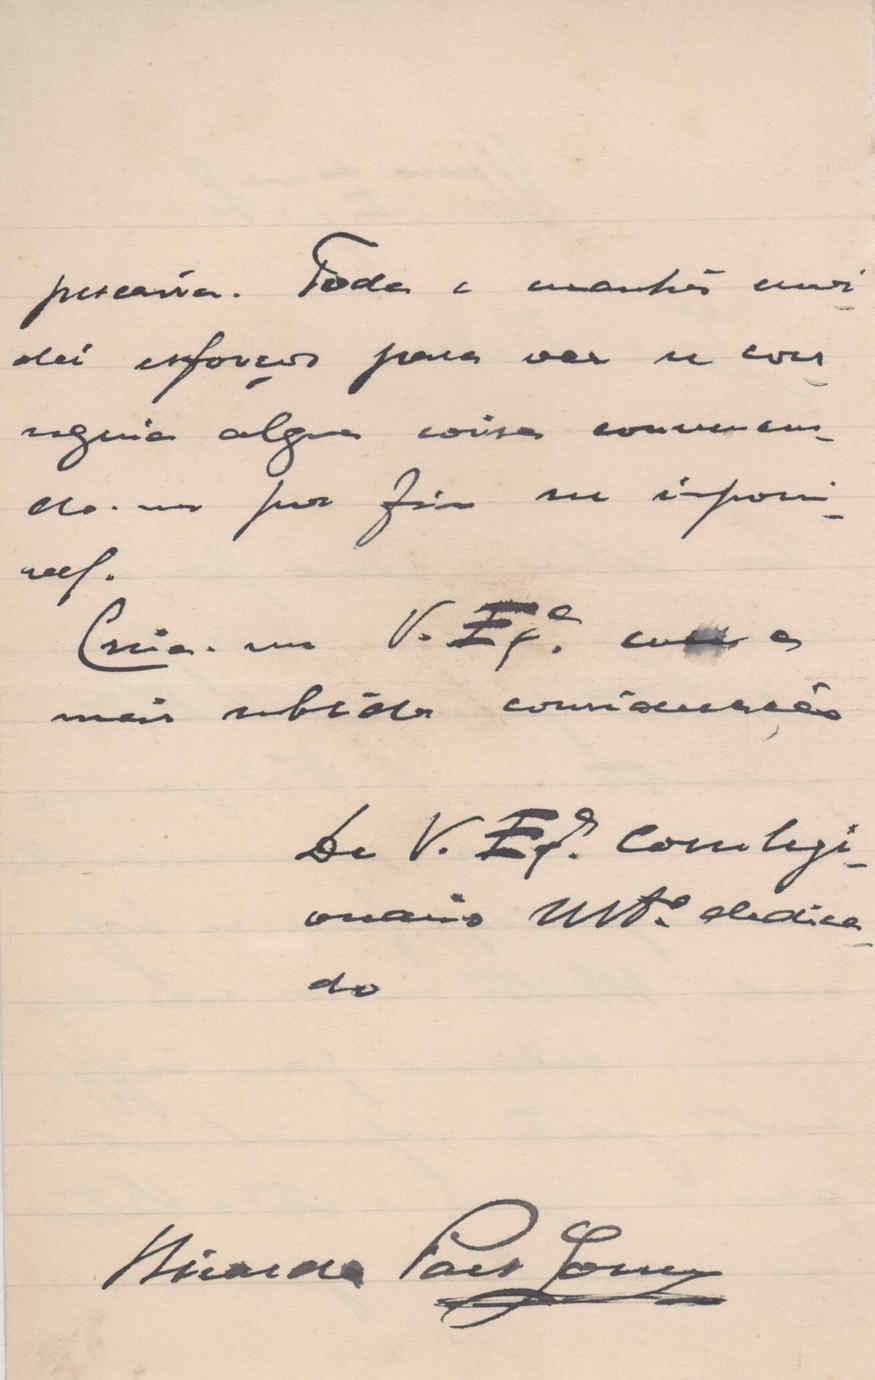 pescaria. Toda a manhã envi-
dei esforços para ver se con-
seguia algua coisa convencen-
do-me por fim ser impossi-
vel.
Creia-me V. Exª. com a
mais subida consideração
De V. Exª. Correlegi-
onario Mtº. dedica-
do
Ricardo Paes Gomes